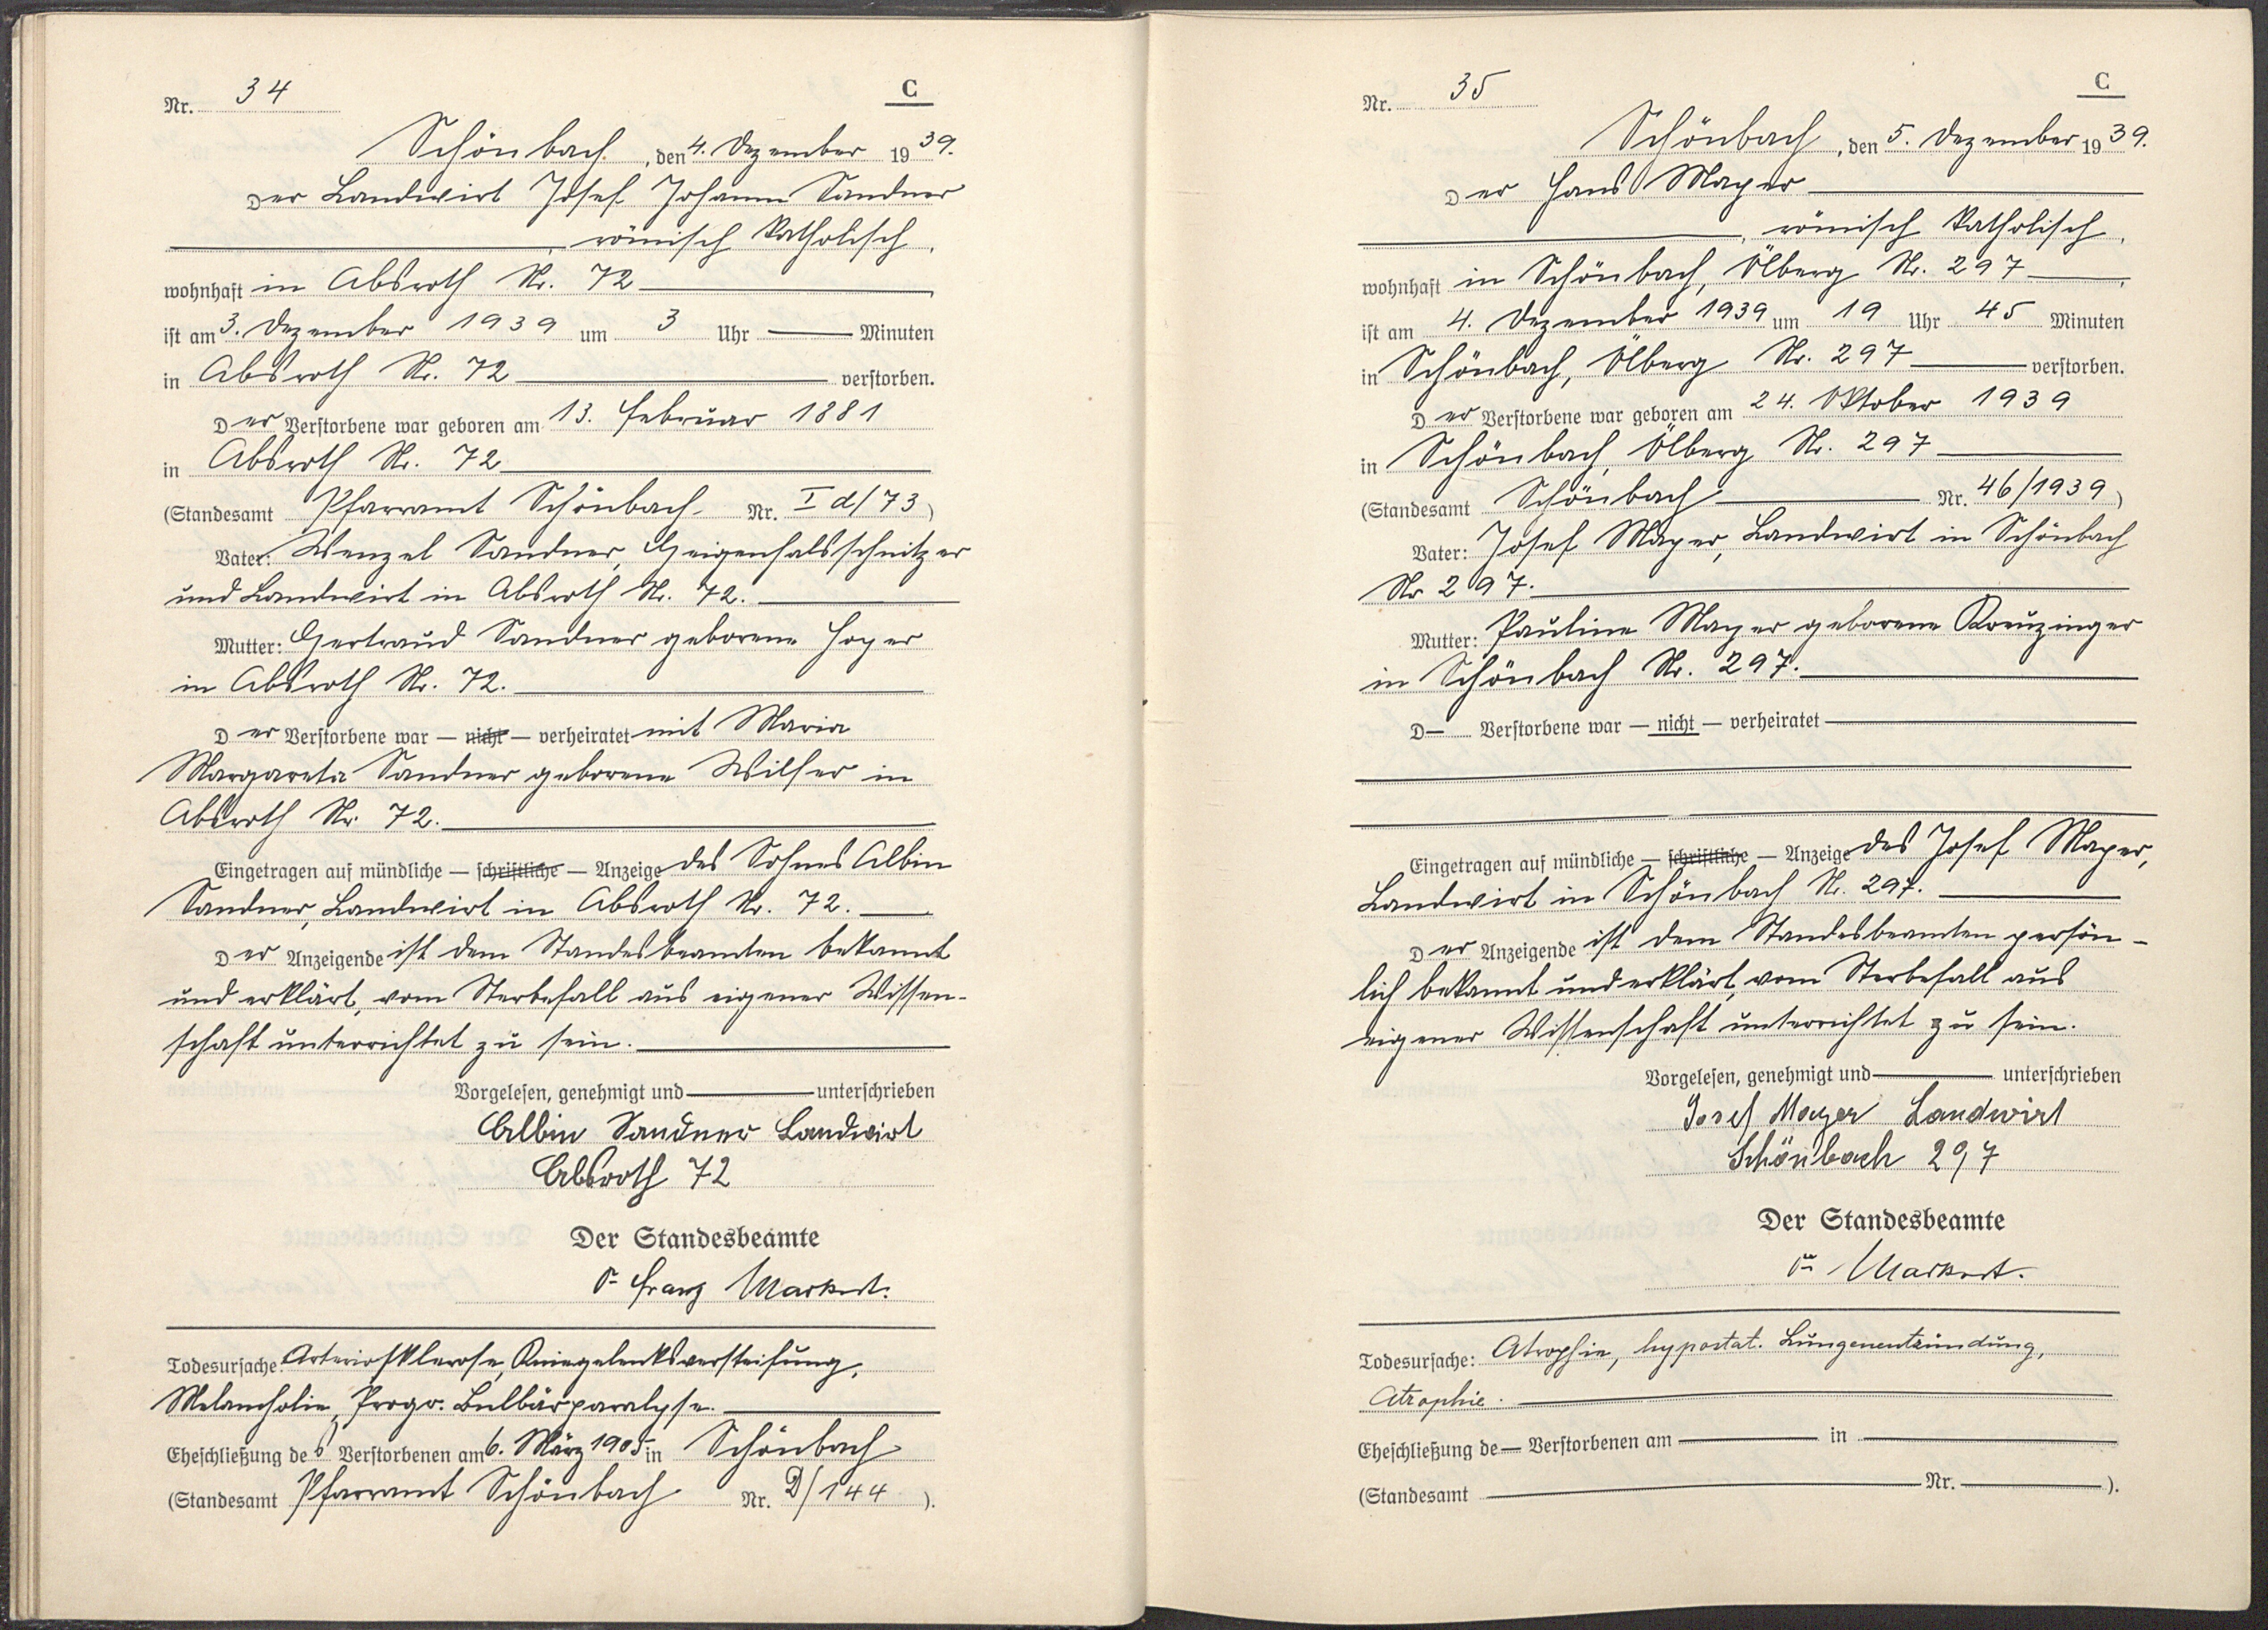 Nr. 34
C
Schönbach, den 4. Dezember 1939.
Der Landwirt Josef Johann Sandner
römisch katholisch,
wohnhaft in Absroth Nr. 72
ist am 3. Dezember 1939 um 3 Uhr — Minuten
in Absroth Nr. 72 — verstorben.
Der Verstorbene war geboren am 13. Februar 1881
in Absroth Nr. 72
(Standesamt Pfarramt Schönbach Nr. I d/73)
Vater: Wenzel Sandner, Geigenhalsschnitzer
und Landwirt in Absroth Nr. 72.
Mutter: Gertraud Sandner geborene Hoyer
in Absroth Nr. 72.
Der Verstorbene war — nicht — verheiratet mit Maria
Margareta Sandner geborene Wilfer in
Absroth Nr. 72.
Eingetragen auf mündliche — schriftliche — Anzeige des Sohnes Albin
Sandner, Landwirt in Absroth Nr. 72.
Der Anzeigende ist dem Standesbeamten bekannt
und erklärt, vom Sterbefall aus eigener Wissen-
schaft unterrichtet zu sein.
Vorgelesen, genehmigt und — unterschrieben
Albin Sandner Landwirt
Absroth 72
Der Standesbeamte
Franz Markert.
Todesursache: Arteriosklerose, Kniegelenksversteifung,
Melancholie, Progr. Bulbärparalyse.
Eheschließung des Verstorbenen am 6. März 1905 in Schönbach
(Standesamt Pfarramt Schönbach Nr. D/144).
Nr. 35
C
Schönbach, den 5. Dezember 1939.
Der Hans Mayer
, römisch katholisch,
wohnhaft in Schönbach, Ölberg Nr. 297
ist am 4. Dezember 1939 um 19 Uhr 45 Minuten
in Schönbach, Ölberg Nr. 297 — verstorben.
Der Verstorbene war geboren am 24. Oktober 1939
in Schönbach, Ölberg Nr. 297
(Standesamt Schönbach — Nr. 46/1939)
Vater: Josef Mayer, Landwirt in Schönbach
Nr 297.
Mutter: Pauline Mayer geborene Kreuzinger
in Schönbach Nr. 297.
D— Verstorbene war — nicht — verheiratet
Eingetragen auf mündliche — schriftliche — Anzeige des Josef Mayer,
Landwirt in Schönbach Nr. 297.
Der Anzeigende ist dem Standesbeamten persön-
lich bekannt und erklärt, vom Sterbefall aus
eigener Wissenschaft unterrichtet zu sein.
Vorgelesen, genehmigt und — unterschrieben
Josef Mayer Landwirt
Schönbach 297
Der Standesbeamte
Markert.
Todesursache: Atrophie, hypostat. Lungenentzündung,
Atrophie.
Eheschließung de— Verstorbenen am — in —
(Standesamt — Nr. —).